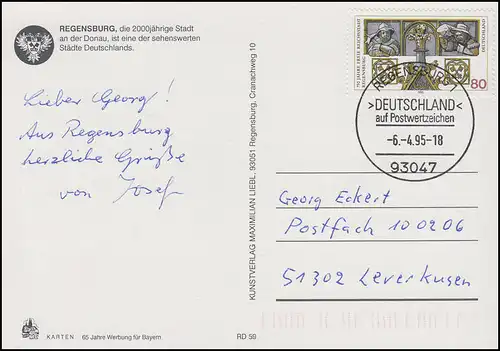 REGENSBURG, die 2000jährige Stadt
an der Donau, ist eine der sehenswerten
Städte Deutschlands.
Lieber Georg!
Aus Regensburg
herzliche Grüße
von Josef
KARTEN 65 Jahre Werbung für Bayern
RD 59
KUNSTVERLAG MAXIMILIAN LIEBL, 93051 Regensburg, Cranachweg 10
750 JAHRE FREIE REICHSSTADT
REGENSBURG
DEUTSCHLAND
80
REGENSBURG 1
>DEUTSCHLAND<
auf Postwertzeichen
-6.-4.95-18
93047
Georg Eckert
Postfach 100206
51302 Leverkusen